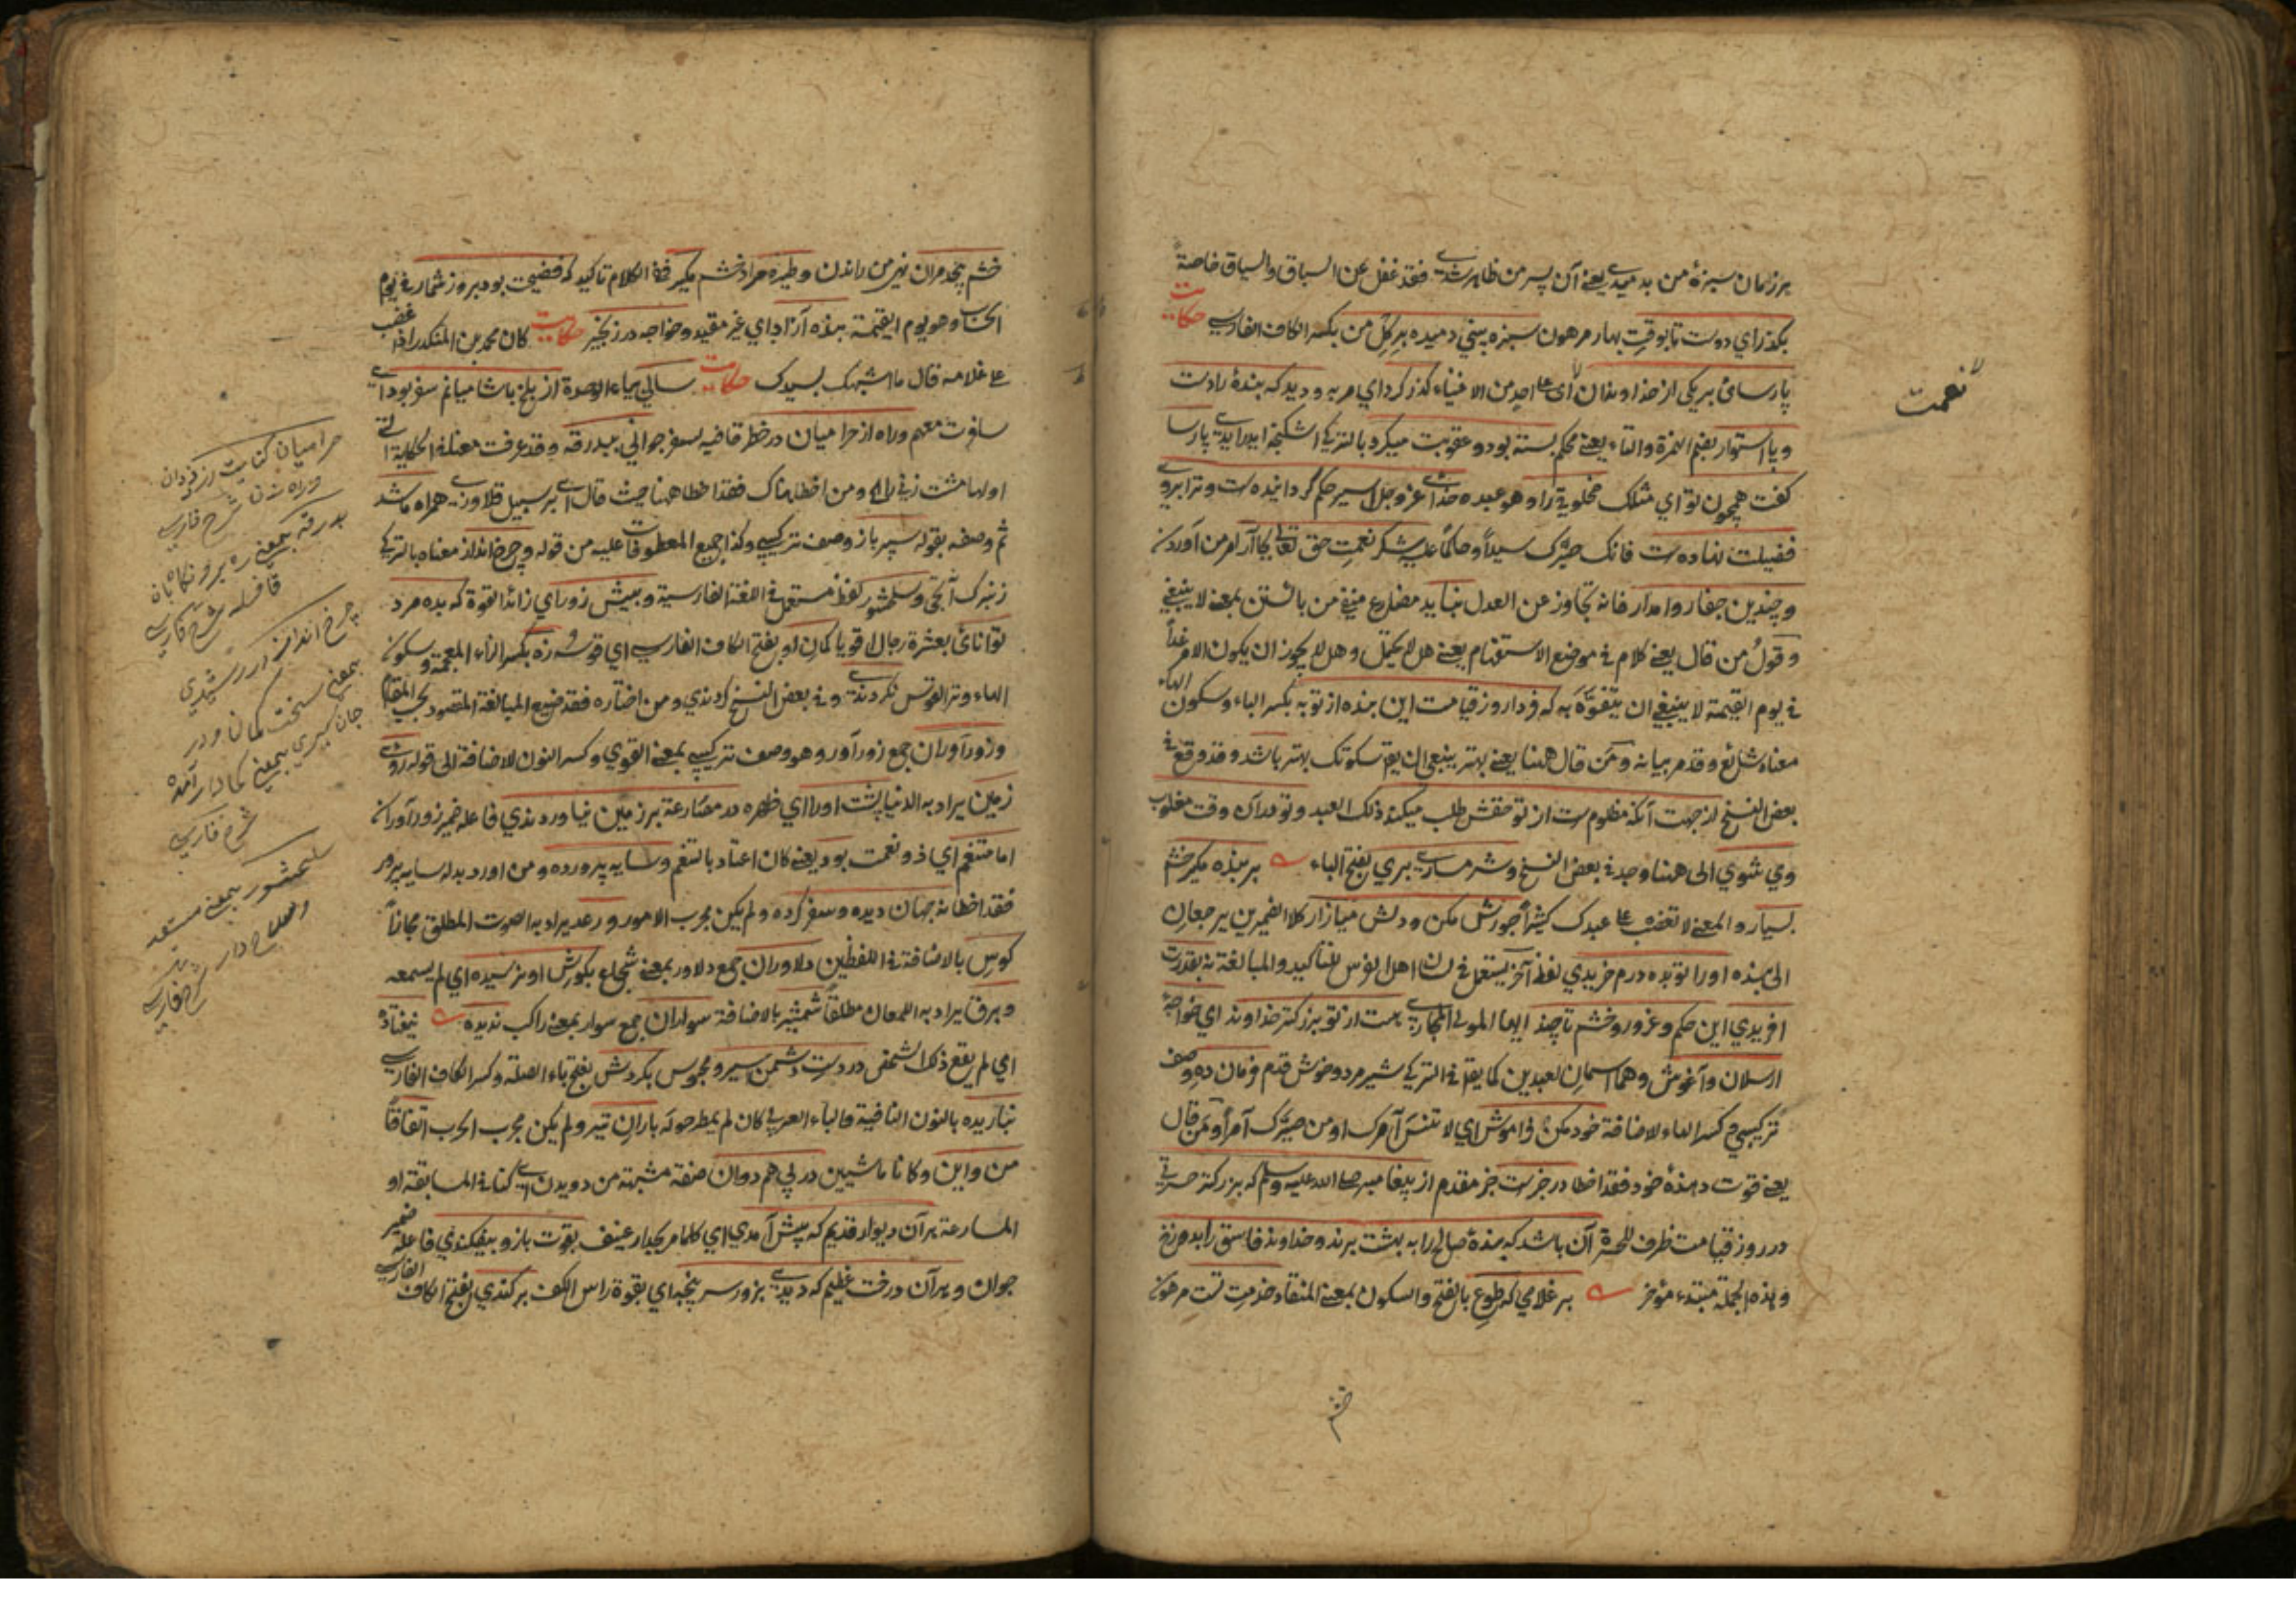 هرزمان سبزۀ من بدميدى يعني آن پسر من ظاهر شدى فقد غفل عن السباق والسياق خاصة
بگذر اي دوست تا بوقت بهار مرهون سبزه بيني دميده بر گل من بكسر الكاف الفارسي حكايت
پارسائ بر يكى از خداوندان اى على احد من الاغنياء گذر كرد اي مر به و ديد كه بندۀ را دست
نعمت
و پا استوار بضم الهمزة والتاء يعني محكم بسته بود و عقوبت ميكرد بالتركي اشكنجه ايدرايدى پارسا
گفت همچون تو اي مثلك مخلوقي را وهو عبده خداى عز وجل اسير حكم گردانيده ست و ترا بروى
فضيلت نهاده ست فانك صيرك سيداً وحاكماً عليه شكر نعمت حق تعالى بجا آر امر من آوردن
و چندين جفا روا مدار فانه تجاوز عن العدل نبايد مضارع منفي من بايستن بمعنى لا ينبغي
وقول من قال يعني كلام في موضع الاستفهام يعني هل لا يحتمل وهل لا يجوز ان يكون الامر غداً
في يوم القيمة لا ينبغي ان يتفوه به كه فردا روز قيامت اين بنده از تو به بكسر الباء وسكون الهاء
معناه شائع وقد مر بيانه ومن قال ههنا يعني بهتر ينبغي ان يقال سكوتك بهتر باشد وقد وقع في
بعض النسخ از جهت آنكه مظلوم ست از تو حقش طلب ميكند ذلك العبد و تو در آن وقت مغلوب
وي شوي الى هنا وجد في بعض النسخ و شرمسارى بري بفتح الباء بر بنده مگير خشم
بسيار والمعنى لا تغضب على عبدك كثيراً جورش مكن و دلش ميازار كلا الضميرين يرجعان
الى بنده او را تو بده درم خريدي لفظ آخر يستعمل في لسان اهل الفرس للتأكيد والمبالغة نه بقدرت
افريدي اين حكم و غرور و خشم تا چند ايها المولى المجازى هست از تو بزرگتر خداوند اي خواجۀ
ارسلان و آغوش وهما اسمان لعبدين كما يقال في التركي شير مرد و خوش قدم فرمان ده وصف
تركيبي وكسر الهاء لاضافة خود مكن فراموش اي لا تنس آمرك او من صيرك آمراً ومن قال
يعني قوت دهندۀ خود فقد اخطا در خبرست خبر مقدم از پيغامبر صلى الله عليه وسلم كه بزرگتر حسرتى
در روز قيامت ظرف للحسرة آن باشد كه بندۀ صالح را به بهشت برند و خداوند فاسق را بدوزخ
وهذه الجملة مبتداء مؤخر بر غلامي كه طوع بالفتح والسكون بمعنى المنقاد خدمت تست مرهون
خشم
خشم بيحد مران نهي من راندن و طيره مراد خشم مگير في الكلام تاكيد كه فضيحت بود بروز شمار في يوم
الحساب وهو يوم القيمة بنده آزاد اي غير مقيد و خواجه در زنجير حكايت كان محمد بن المنكدر اذا غضب
على غلامه قال ما اشبهك بسيدك حكايت سالي بياء الوحدة از بلخ با شاميانم سفر بود اى
سافرت معهم و راه از حراميان در خطر قافيه لسفر جواني ببدرقه وقد عرفت معناه في الحكاية التي
اولها مشت زني را ومن اخطا هناك فقد اخطا ههنا حيث قال اى بر سبيل قلاوزى همراه ما شد
ثم وصفه بقوله سپر باز وصف تركيبي وكذا جميع المعطوفات عليه من قوله و چرخ انداز معناه بالتركي
زنبرك آتجى و سلحشور لفظ مستعمل في اللغة الفارسية و بيش زور اي زائد القوة كه بده مرد
توانائ بعشرة رجال اقويا كمان او بفتح الكاف الفارسي اي قوسه زه بكسر الزاء المعجمة وسكون
الهاء وتر القوس نكردندى وفي بعض النسخ كردندي ومن اختاره فقد ضيع المبالغة المقصود بحسب المقام
و زور آوران جمع زور آور وهو وصف تركيبي بمعنى القوي وكسر النون لاضافة الى قوله روى
زمين يراد به الدنيا پشت او را اي ظهره در مصارعة بر زمين نياوردندي فاعله ضمير زورآوران
اما متنعم اي ذو نعمت بود يعني كان اعتاد بالتنعم و سايه پرورده ومن اورد بدله سايه پرور
فقد اخطا نه جهان ديده و سفر كرده ولم يكن مجرب الامور و رعد يراد به الصوت المطلق مجازاً
كوس بالاضافة في اللفظين دلاوران جمع دلاور بمعنى شجاع بگوش او نرسيده اي لم يسمعه
و برق يراد به اللمعان مطلقاً شمشير بالاضافة سواران جمع سوار بمعنى راكب نديده نيفتاده
اي لم يقع ذلك الشخص در دست دشمن اسير و محبوس بگردش بفتح باء الصلة وكسر الكاف الفارسي
نباريده بالنون النافية والباء العربي كان لم يمطر حوله باران تير ولم يكن مجرب الحرب اتفاقاً
من و اين وكانا ماشيين در پي هم دوان صفة مشبهة من دويدن اى كنا في المسابقة او
المسارعة هر آن ديوار قديم كه پيش آمدي اي كلما مر بجدار عنيف بقوت بازو بيفكندي فاعله ضمير
جوان و هر آن درخت عظيم كه ديدى بزور سر پنجه اي بقوة راس الكف بر كندي بفتح الكاف الفارسي
حراميان كنايت از دزدان
و راه زنان شرح فارسي
بدرقه بمعنى رهبر و نگاهبان
قافله شرح فارسي
چرخ انداز
بمعنى سخت كمان و در
بمعنى كماندار آمده
شرح فارسي
سلحشور بمعنى مستعد
و سلاح دار
شرح فارسي